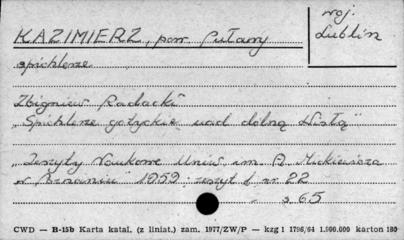 KAZIMIERZ, pow. Puławy
woj.
Lublin
spichlerze
Zbigniew Radacki
"Spichlerze gotyckie nad dolną Wisłą"
"Zeszyty Naukowe Uniw. im. A. Mickiewicza
w Poznaniu" 1959, zeszyt 1 nr 22
s. 65
CWD — B-15b Karta katal. (z liniat.) zam. 1977/ZW/P — kzg 1 1796/64 1.900.000 karton 180